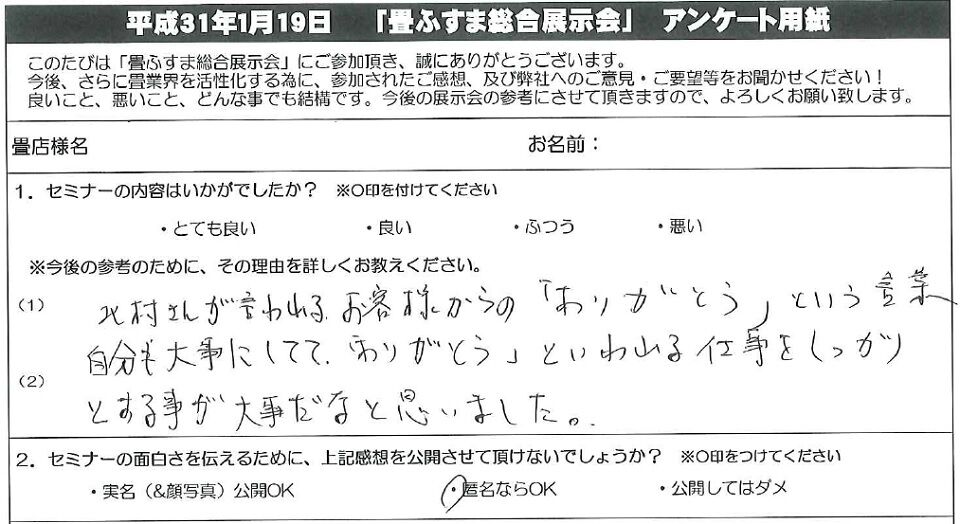 平成31年1月19日 「畳ふすま総合展示会」 アンケート用紙
このたびは「畳ふすま総合展示会」にご参加頂き、誠にありがとうございます。
今後、さらに畳業界を活性化する為に、参加されたご感想、及び弊社へのご意見・ご要望等をお聞かせください！
良いこと、悪いこと、どんな事でも結構です。今後の展示会の参考にさせて頂きますので、よろしくお願い致します。
畳店様名 お名前：
1．セミナーの内容はいかがでしたか？ ※〇印を付けてください
・とても良い ・良い ・ふつう ・悪い
※今後の参考のために、その理由を詳しくお教えください。
(1) 北村さんが言われるお客様からの「ありがとう」という言葉
自分も大事にしてて、「ありがとう」といわれる仕事をしっかり
(2)
とする事が大事だなと思いました。
2．セミナーの面白さを伝えるために、上記感想を公開させて頂けないでしょうか？ ※〇印をつけてください
・実名（&顔写真）公開OK ・匿名ならOK ・公開してはダメ